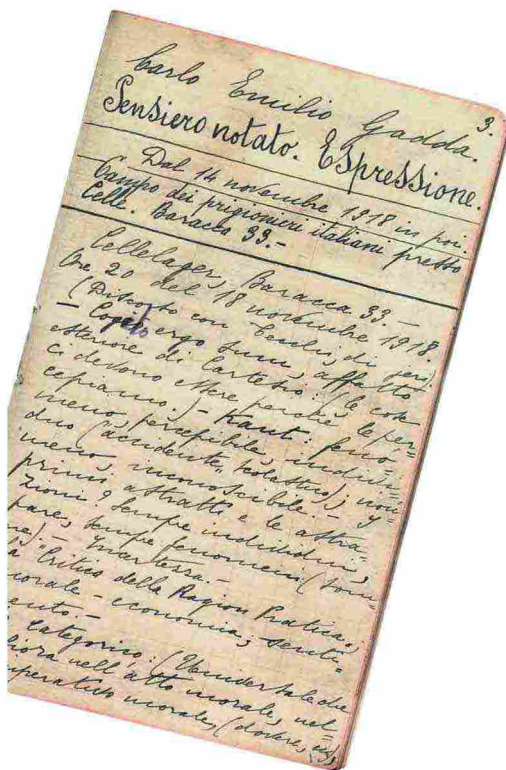 3.
Carlo Emilio Gadda.
Pensiero notato. Espressione.
Dal 14 novembre 1918 in poi
Campo dei prigionieri italiani presso
Celle. Baracca 33.-
Cellelager, Baracca 33.-
Ore 20 del 18 novembre 1918.
(Discorso con di ieri)
- Cogito ergo sum,
esteriore di Cartesio: (le cose
ci devono essere perché le per=
cepiamo.) - Kant feno=
meno percepibile, indivi=
duo (accidente, scolastico); nou=
meno inconoscibile -
primi astratti e le astra=
zioni? Sempre individui,
pare, sempre fenomeni (
me) -
Critica della Ragion Pratica,
morale - economia, senti=
mento -
Categorico. (
nell'atto morale, nel=
imperativo morale, (dovere,